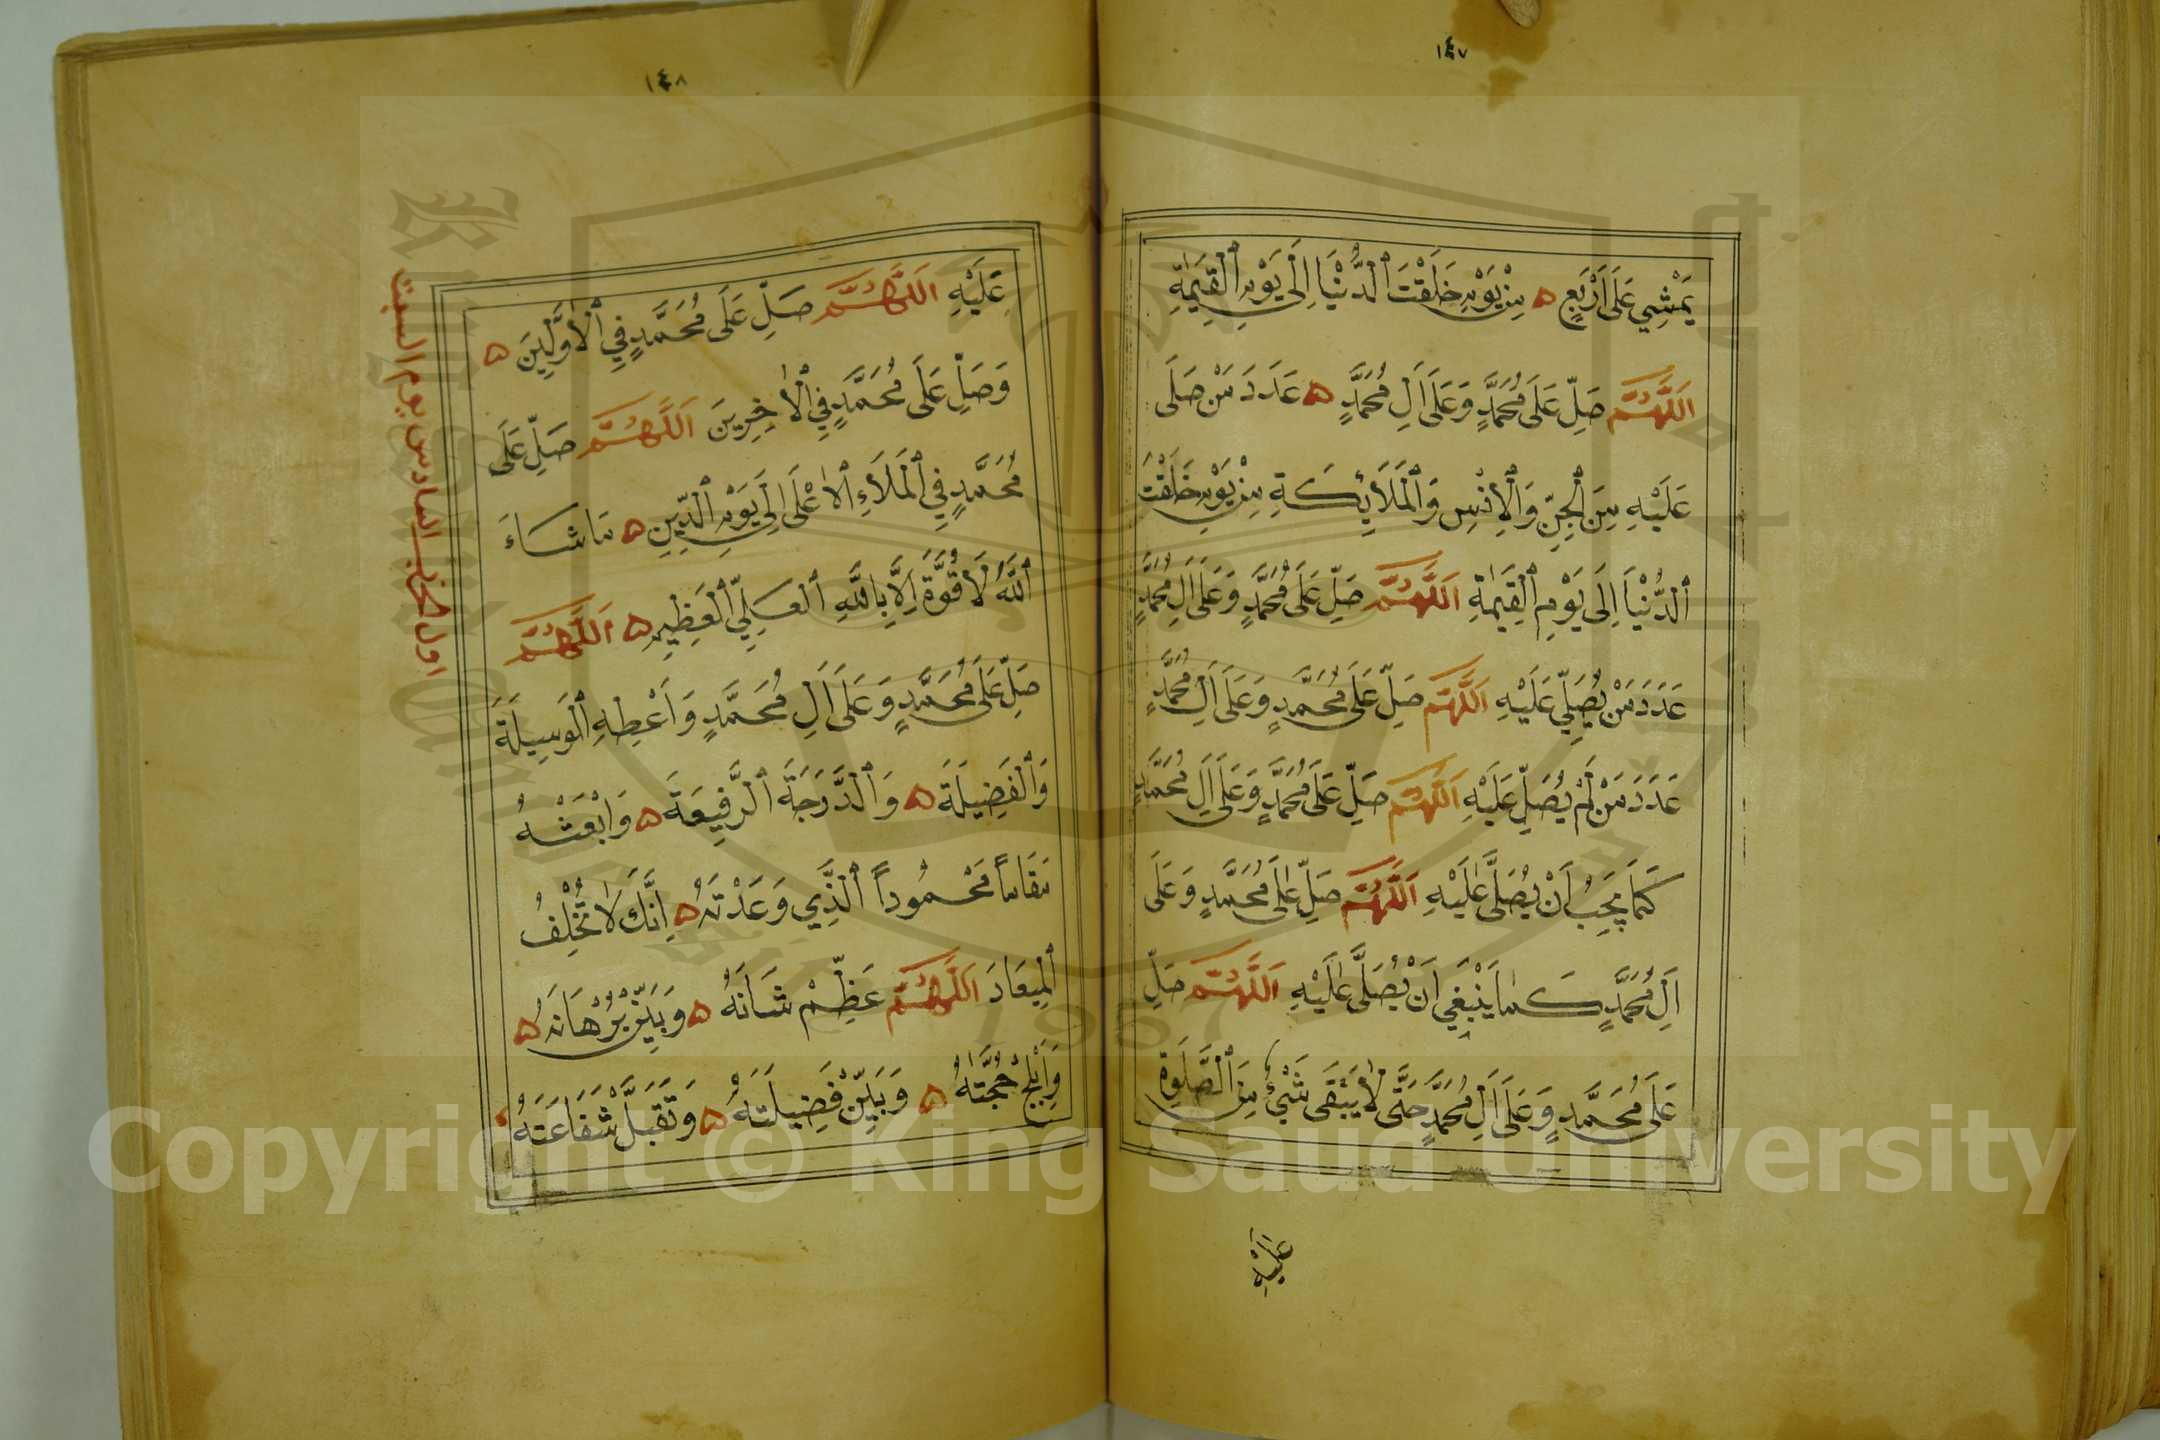 ١٤٧
يَمْشِي عَلَى اَرْبَعٍ ۞ مِنْ يَوْمِ خَلَقْتَ ٱلدُّنْيَا اِلَى يَوْمِ ٱلْقِيَمَةِ
اَللَّهُمَّ صَلِّ عَلَى مُحَمَّدٍ وَعَلَى اَلِ مُحَمَّدٍ ۞ عَدَدَ مَنْ صَلَى
عَلَيْهِ مِنَ ٱلْجِنِّ وَٱلْاِنْسِ وَٱلْمَلَائِكَةِ مِنْ يَوْمِ خَلَقْتَ
ٱلدُّنْيَا اِلَى يَوْمِ ٱلْقِيَمَةِ اَللَّهُمَّ صَلِّ عَلَى مُحَمَّدٍ وَعَلَى اَلِ مُحَمَّدٍ
عَدَدَ مَنْ يُصَلِّي عَلَيْهِ اَللَّهُمَّ صَلِّ عَلَى مُحَمَّدٍ وَعَلَى اَلِ مُحَمَّدٍ
عَدَدَ مَنْ لَمْ يُصَلِّ عَلَيْهِ اَللَّهُمَّ صَلِّ عَلَى مُحَمَّدٍ وَعَلَى اَلِ مُحَمَّدٍ
كَمَا يَجِبُ اَنْ يُصَلَّى عَلَيْهِ اَللَّهُمَّ صَلِّ عَلَى مُحَمَّدٍ وَعَلَى
اَلِ مُحَمَّدٍ كَمَا يَنْبَغِي اَنْ يُصَلَّى عَلَيْهِ اَللَّهُمَّ صَلِّ
عَلَى مُحَمَّدٍ وَعَلَى اَلِ مُحَمَّدٍ حَتَّى لَا يَبْقَى شَيْءٌ مِنَ ٱلصَّلَوةِ
عَلَيْهِ
١٤٨
عَلَيْهِ اَللَّهُمَّ صَلِّ عَلَى مُحَمَّدٍ فِي ٱلْاَوَّلِينَ ۞
وَصَلِّ عَلَى مُحَمَّدٍ فِي ٱلْاٰخِرِينَ اَللَّهُمَّ صَلِّ عَلَى
مُحَمَّدٍ فِي ٱلْمَلَاءِ ٱلاَعْلَى اِلَى يَوْمِ ٱلدِّينِ ۞ مَا شَاءَ
ٱللَّهُ لَا قُوَّةَ اِلَّا بِاللَّهِ ٱلْعَلِيِّ ٱلْعَظِيْمِ ۞ اَللَّهُمَّ
صَلِّ عَلَى مُحَمَّدٍ وَعَلَى اَلِ مُحَمَّدٍ وَاَعْطِهِ ٱلْوَسِيلَةَ
وَٱلْفَضِيلَةَ ۞ وَٱلدَّرَجَةَ ٱلرَّفِيعَةَ ۞ وَابْعَثْهُ
مَقَاماً مَحْمُوداً ٱلَّذِي وَعَدْتَهُ ۞ اِنَّكَ لَا تُخْلِفُ
ٱلْمِيعَادَ اَللَّهُمَّ عَظِّمْ شَانَهُ ۞ وَبَيِّنْ بُرْهَانَهُ ۞
وَاَبْلِجْ حُجَّتَهُ ۞ وَبَيِّنْ فَضِيلَتَهُ ۞ وَتَقَبَّلْ شَفَاعَتَهُ
اول الحزب السادس يوم السبت
Copyright © King Saud University
1957